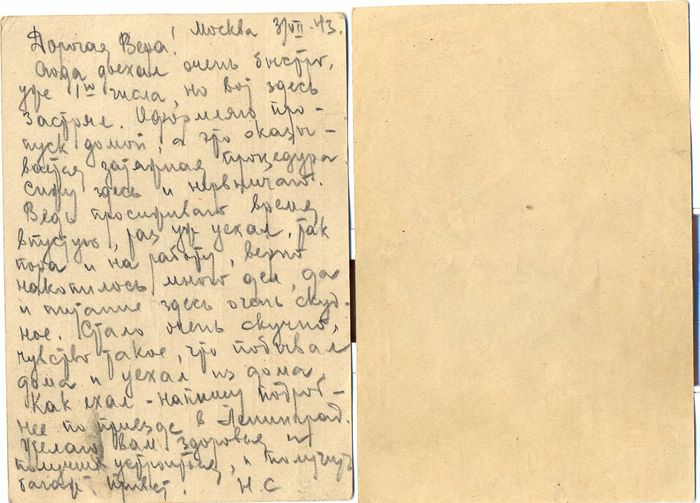 Москва 3/VII-43.
Дорогая Вера!
Сюда доехал очень быстро,
уже 1го числа, но вот здесь
застрял. Оформляю про-
пуск домой, а это оказы-
вается затяжная процедура
Сижу здесь и нервничаю.
Ведь просиживаю время
впустую, раз уж уехал, так
пора и на работу, верно
накопилось много дел, да
и питание здесь очень скуд-
ное. Стало очень скучно,
чувство такое, что побывал
дома и уехал из дома.
Как ехал - напишу подроб-
нее по приезде в Ленинград.
Желаю вам здоровья и
получше устроиться, и получить
багаж. Привет. Н.С